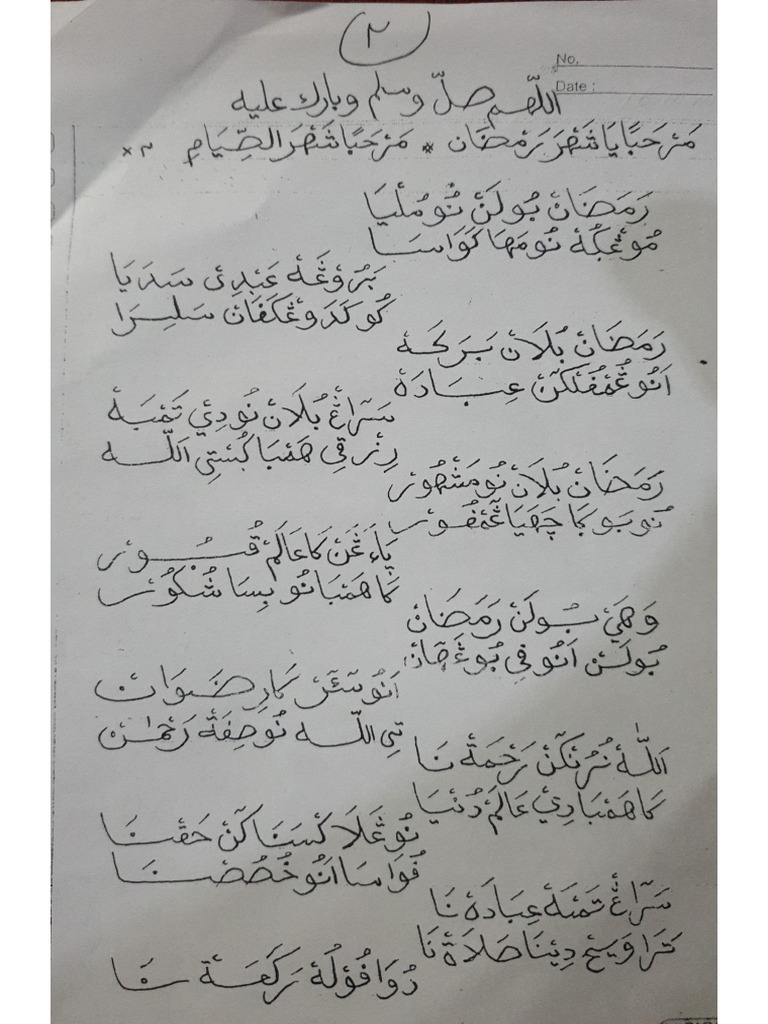 ٢
No.
Date :
اللّهم صلّ وسلم وبارك عليه
مَرْحَبًا يَا شَهْرَ رَمْضَان * مَرْحَبًا شَهْرَ الصِّيَامِ ×٢
رَمَضَانْ بُولَنْ نُو مُلْيَا
مُوڠْݢُهْ نُومَهَا كَوَاسَا
بَرُوْڠَهْ عَبْدِيْ سَدَيَا
كُو كَدَوڠْكَفَانْ سَلِيرَا
رَمَضَانْ بُلَانْ بَرَكَهْ
اَنُو ڠُمْفُلْكَنْ عِبَادَهْ
سَرَاڠْ بُلَانْ نُو دِيْ تَمْبَهْ
رِزْقِي هَمْبَا ݢُسْتِي اللّٰه
رَمَضَانْ بُلَانْ نُو مَشْهُوْر
نُو بَوَ كَا چَهَيَا ڠَمْفُوْر
يَاءَڠَنْ كَا عَالَمْ قُبُوْر
كَا هَمْبَا نُو بِسَا شُكُوْر
وَهَيْ بُولَنْ رَمَضَانْ
بُولَنْ اَنُو فِي بُوءَهَانْ
اَنُو سَءَنْ كَا رِضْوَانْ
تِي اللّٰه نُو صِفَةْ رَحْمٰنْ
اَللّٰهْ نُرُنْكَنْ رَحْمَةْ نَا
كَا هَمْبَا دِيْ عَالَمْ دُنْيَا
نُو ڠَلَاكْسَنَاكَنْ حَقْنَا
فُوَاسَا اَنُو خُصُصْنَا
سَرَاڠْ تَمْبَهْ عِبَادَهْ نَا
تَرَاوَيْحْ دِينَا صَلَاةْ نَا
دُوَا فُوْلُهْ رَكَعَةْ نَا